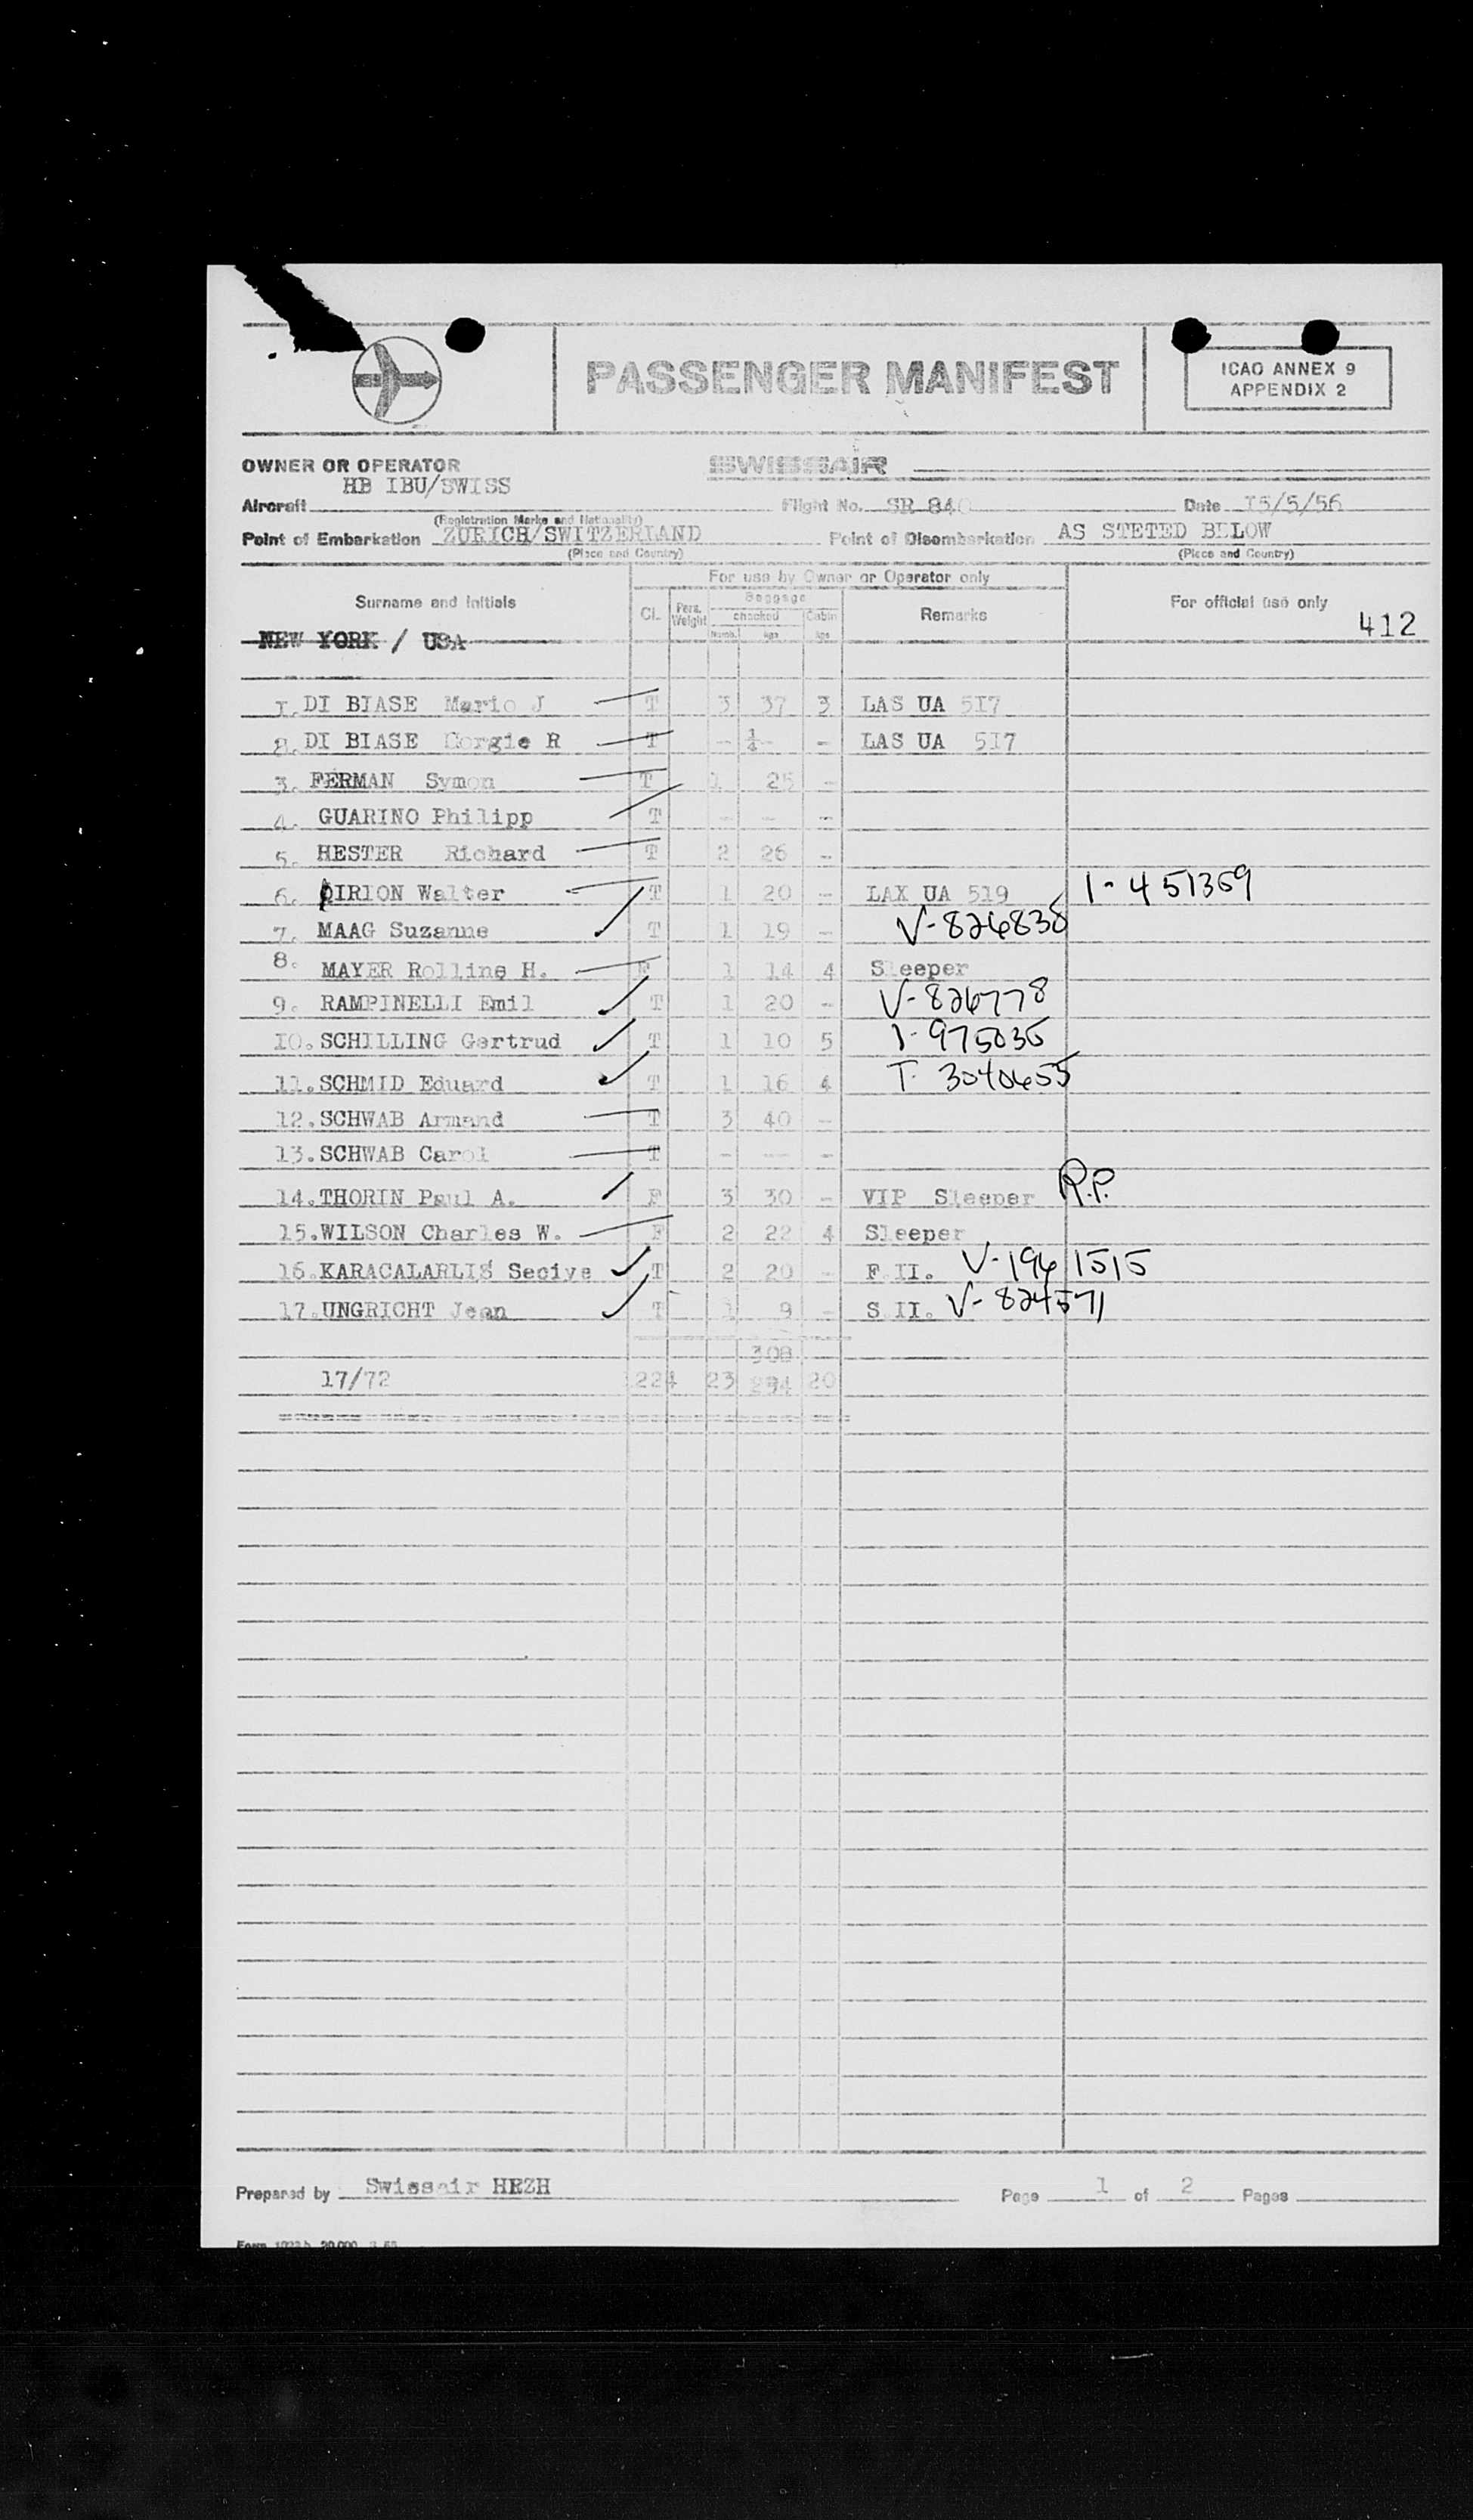 PASSENGER MANIFEST
ICAO ANNEX 9
APPENDIX 2
OWNER OR OPERATOR SWISSAIR
Aircraft HB IBU/SWISS Flight No. SR 840 Date 15/5/56
(Registration Marks and Nationality)
Point of Embarkation ZURICH/SWITZERLAND Point of Disembarkation AS STETED BELOW
(Place and Country) (Place and Country)
For use by Owner or Operator only
Surname and Initials Cl. Pers. Weight Baggage checked Numb. kgs Cabin kgs Remarks For official use only
412
NEW YORK / USA
1. DI BIASE Mario J T 3 37 3 LAS UA 517
2. DI BIASE R T - - - LAS UA 517
3. FERMAN Symon T 25 -
4. GUARINO Philipp T - - -
5. HESTER Richard T 2 26 -
6. DIRION Walter T 1 20 - LAX UA 519 1-451369
7. MAAG Suzanne T 1 19 - V-826838
8. MAYER Rollins H. F 1 14 4 Sleeper
9. RAMPINELLI Emil T 1 20 - V-826778
10. SCHILLING Gertrud T 1 10 5 1-975035
11. SCHMID Eduard T 1 16 4 T. 3040655
12. SCHWAB Armand T 3 40 -
13. SCHWAB Carol T - - -
14. THORIN Paul A. F 3 30 - VIP Sleeper R.P.
15. WILSON Charles W. F 2 22 4 Sleeper
16. KARACALARLIS Seciye T 2 20 - F.II. V-1961515
17. UNGRICHT Jean T 1 9 - S.II. V-824571
308
17/72 1224 23 294 20
Prepared by Swissair HRZH Page 1 of 2 Pages